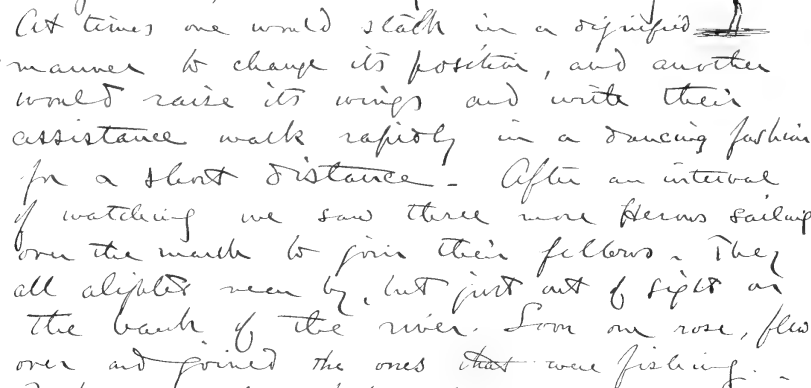 At times one would stalk in a dignified
manner to change its position, and another
would raise its wings and with their
assistance walk rapidly in a dancing fashion
for a short distance. After an interval
of watching we saw three more Herons sailing
over the marsh to join their fellows. They
all alighted near by, but just out of sight on
the bank of the river. Soon one rose, flew
over and joined the ones that were fishing.